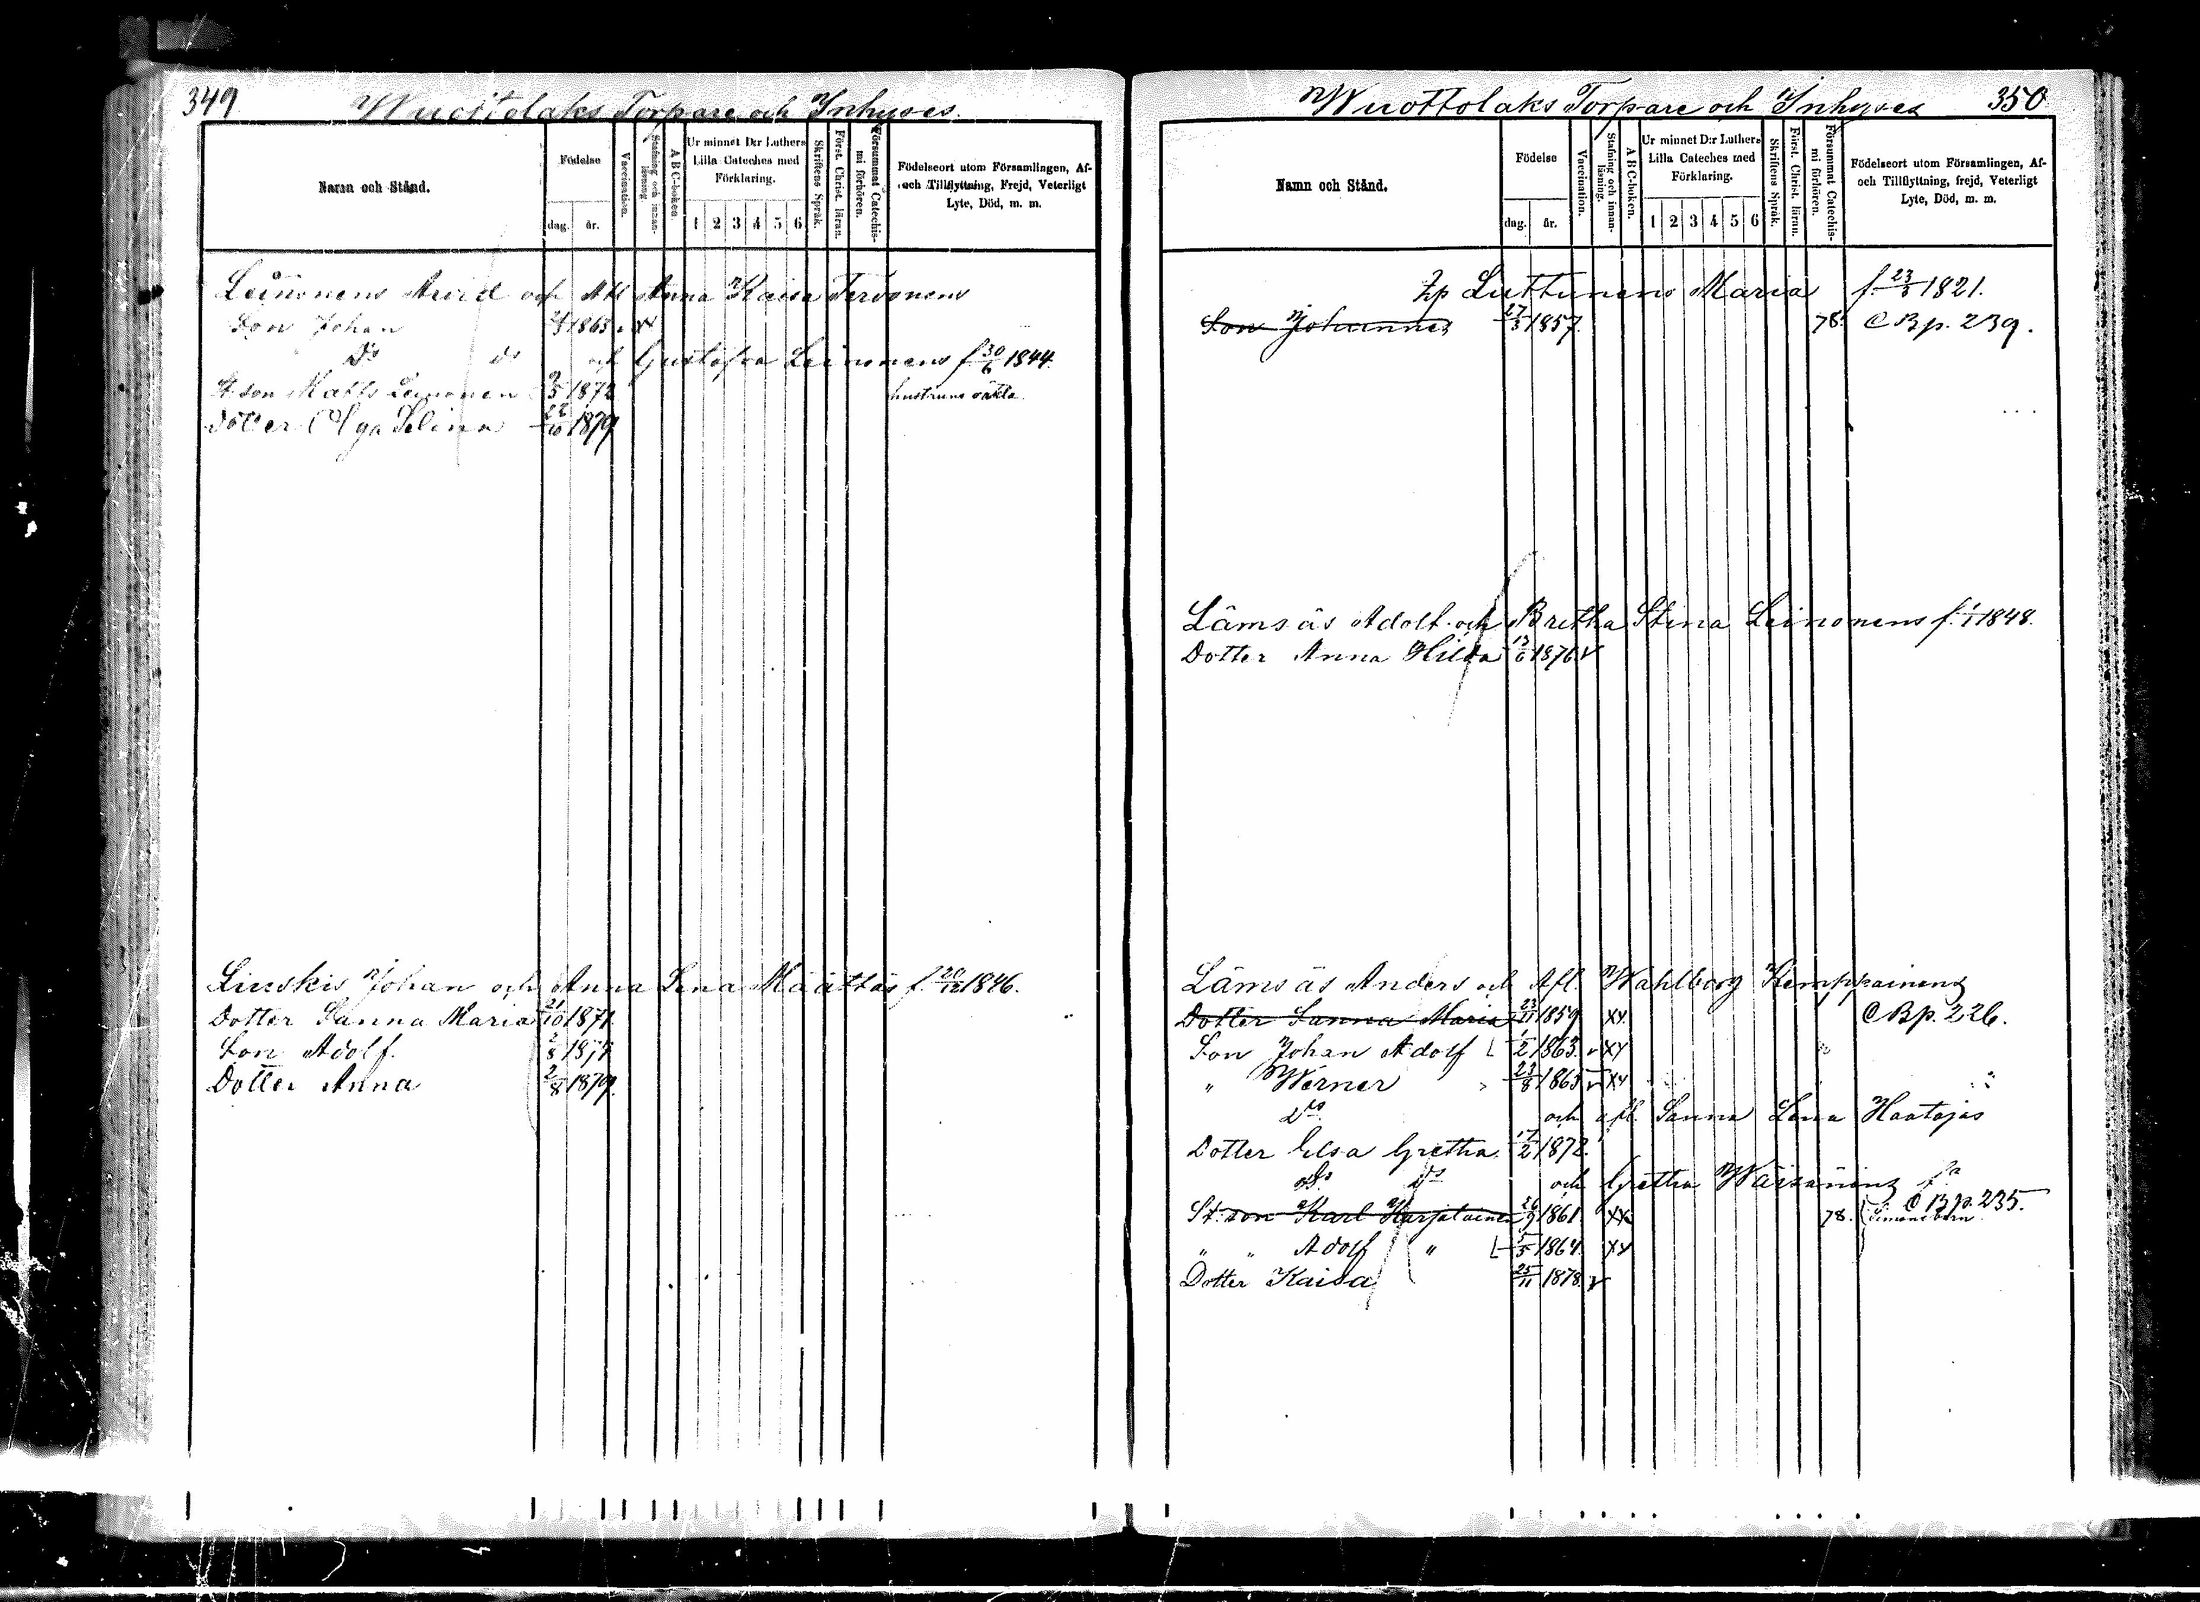 349
Wuottolaks Torpare och Inhyses.
Namn och Stånd.
Födelse
dag.
år.
Vaccination.
Stafning och innan-läsning.
A B C-boken.
Ur minnet D:r Luthers
Lilla Cateches med
Förklaring.
1 2 3 4 5 6
Skriftens Språk.
Först. Christ. läran.
Försummat Catechis-
mi förhören.
Födelseort utom Församlingen, Af-
och Tillflyttning, Frejd, Veterligt
Lyte, Död, m. m.
Leinonens Arvid och Afl Anna Kaisa Tervonens
Son Johan 1863
Ds ds och Gustafva Leinonens f. 30/6 1844.
St. son Matts Leinonen 9/5 1872 hustruns oäkta
Dotter Olga Selina 22/10 1879
Linskis Johan och Anna Lena Määttäs f. 20/12 1846.
Dotter Sanna Maria 21/10 1871.
Son Adolf. 2/8 1877
Dotter Anna 2/8 1879.
Wuottolaks Torpare och Inhyses
350
Namn och Stånd.
Födelse
dag.
år.
Vaccination.
Stafning och innan-läsning.
A B C-boken.
Ur minnet D:r Luthers
Lilla Cateches med
Förklaring.
1 2 3 4 5 6
Skriftens Språk.
Först. Christ. läran.
Försummat Catechis-
mi förhören.
Födelseort utom Församlingen, Af-
och Tillflyttning, frejd, Veterligt
Lyte, Död, m. m.
Luttunens Maria f. 23/3 1821.
Son Johannes 27/3 1857. 78. C Bp. 239.
Lämsäs Adolf och Bretha Stina Leinonens f. 1/1 1848.
Dotter Anna Hilda 13/6 1876
Lämsäs Anders och Afl. Wahlborg Kemppainens
Dotter Sanna Maria 23/11 1859 XX. C Bp. 226.
Son Johan Adolf 1863. XX
" Werner 23/8 1865 XX
Ds. och afl. Sanna Lena Haatajas
Dotter Elsa Gretha 17/2 1872.
Ds. Ds och Gretha Wäisänens
St. son Karl Karjalainen 26/9 1861 XX 78. C Bp. 235.
Simons barn
" " Adolf " 1864 XX
Dotter Kaisa 25/11 1878.